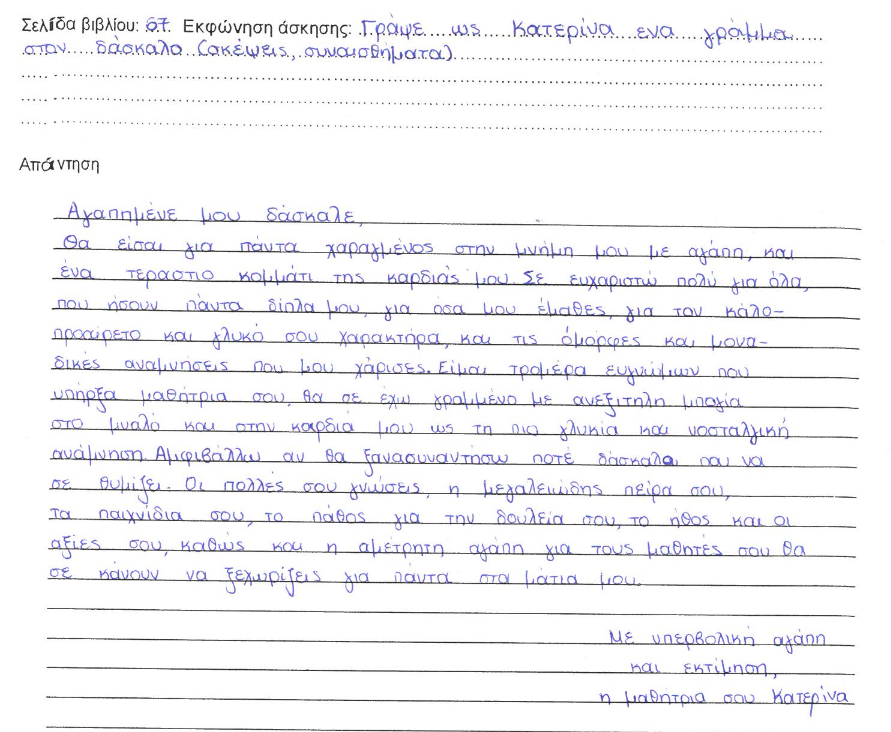 Σελίδα βιβλίου: 67. Εκφώνηση άσκησης: Γράψε ως Κατερίνα ενα γράμμα
στον δάσκαλο (σκέψεις, συναισθήματα)
Απάντηση
Αγαπημένε μου δάσκαλε,
Θα είσαι για πάντα χαραγμένος στην μνήμη μου με αγάπη, και
ένα τεράστιο κομμάτι της καρδιάς μου. Σε ευχαριστώ πολύ για όλα,
που ήσουν πάντα δίπλα μου, για όσα μου έμαθες, για τον κάλο-
προαίρετο και γλυκό σου χαρακτήρα, και τις όμορφες και μονα-
δικές αναμνήσεις που μου χάρισες. Είμαι τρομερά ευγνώμων που
υπήρξα μαθήτρια σου, θα σε έχω γραμμένο με ανεξίτηλη μπογιά
στο μυαλό και στην καρδιά μου ως τη πιο γλυκιά και νοσταλγική
ανάμνηση. Αμφιβάλλω αν θα ξανασυναντήσω ποτέ δάσκαλο που να
σε θυμίζει. Οι πολλές σου γνώσεις, η μεγαλειώδης πείρα σου,
τα παιχνίδια σου, το πάθος για την δουλεία σου, το ήθος και οι
αξίες σου, καθώς και η αμέτρητη αγάπη για τους μαθητές σου θα
σε κάνουν να ξεχωρίζεις για πάντα στα μάτια μου.
Με υπερβολική αγάπη
και εκτίμηση,
η μαθήτρια σου Κατερίνα